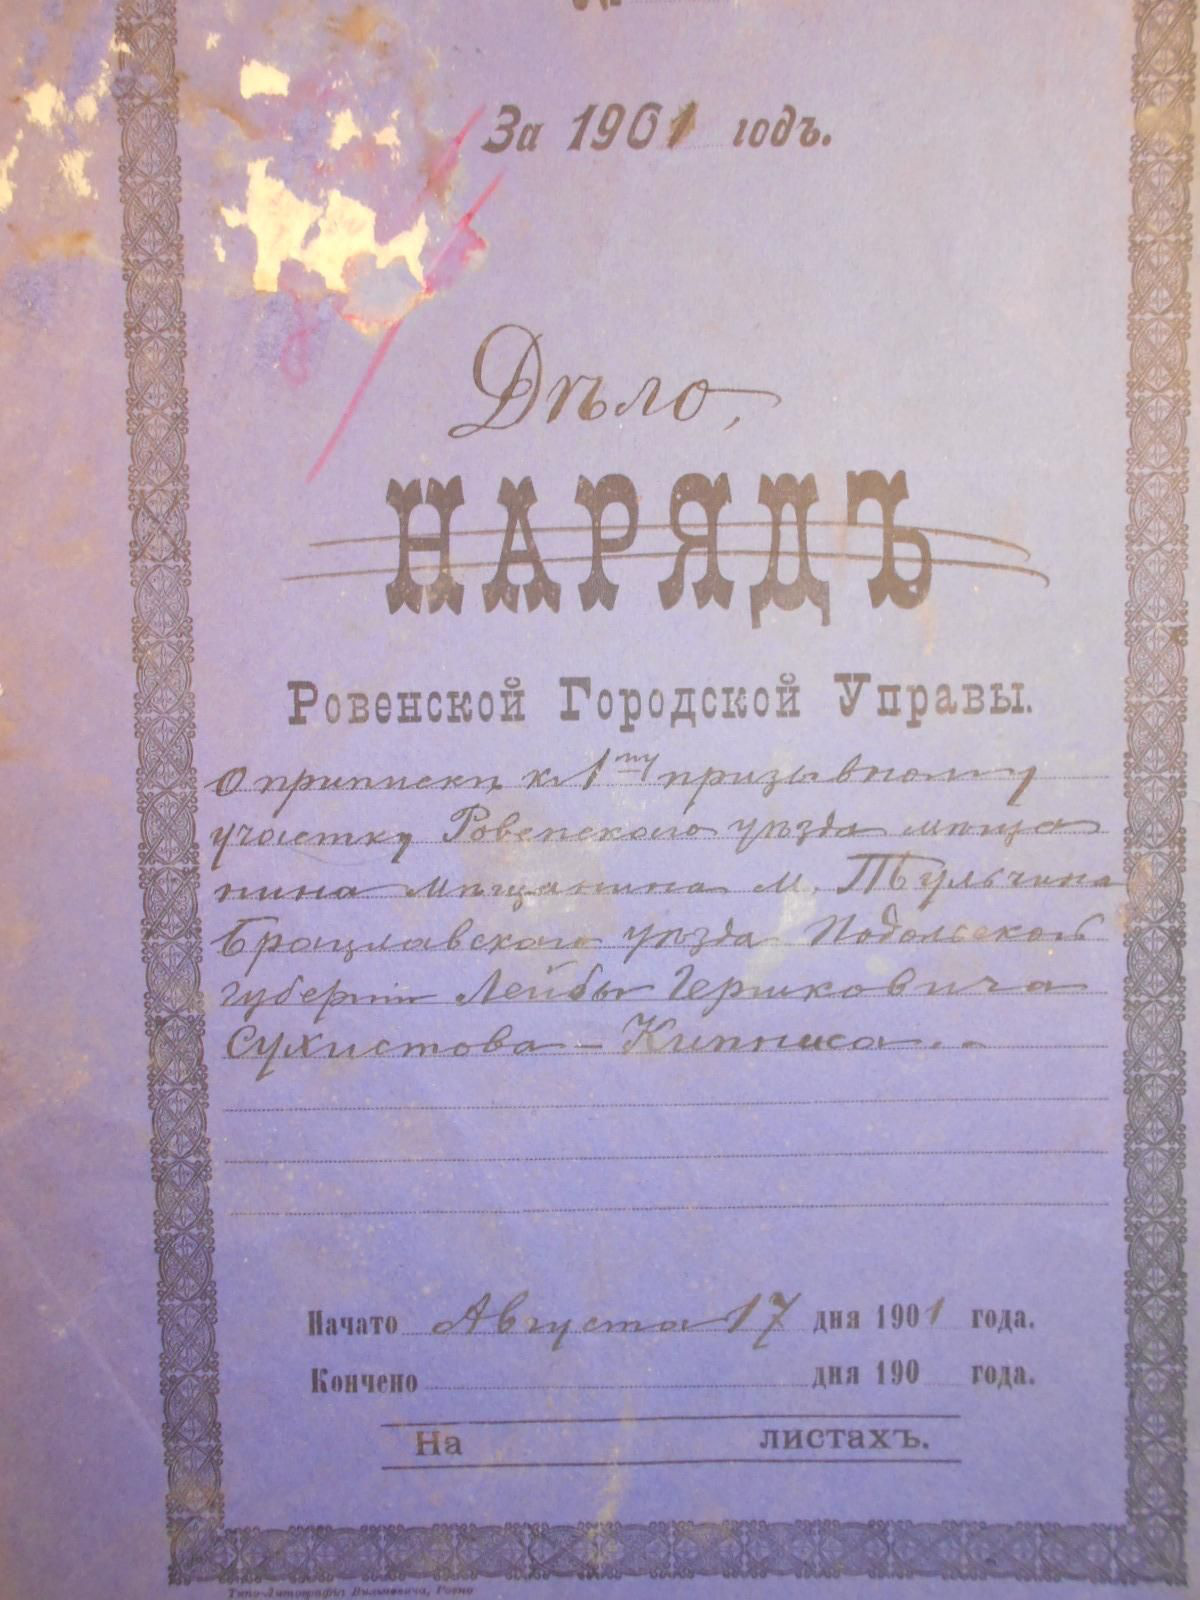 №
За 1901 годъ.
Дѣло,
НАРЯДЪ
Ровенской Городской Управы.
О приписки къ 1му призывному
участку Ровенскаго уѣзда мѣща
нина мѣщанина м. Тульчина
Брацлавскаго уѣзда Подольской
губерніи Лейбы Гершковича
Сухистова – Кипниса.
Начато Августа 17 дня 1901 года.
Кончено дня 190 года.
На листахъ.
Типо-Литографія Вильковича, Ровно